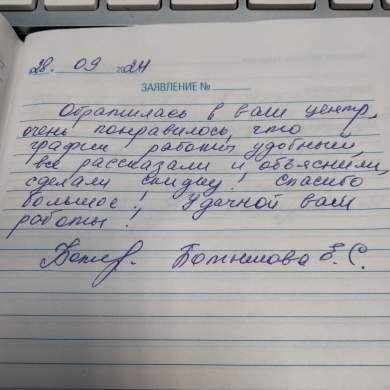 28. 09 2024
ЗАЯВЛЕНИЕ №
Обратилась в ваш центр,
очень понравилось, что
график работы удобный,
все рассказали и объяснили,
сделали скидку! Спасибо
большое! Удачной вам
работы!
Е.С.